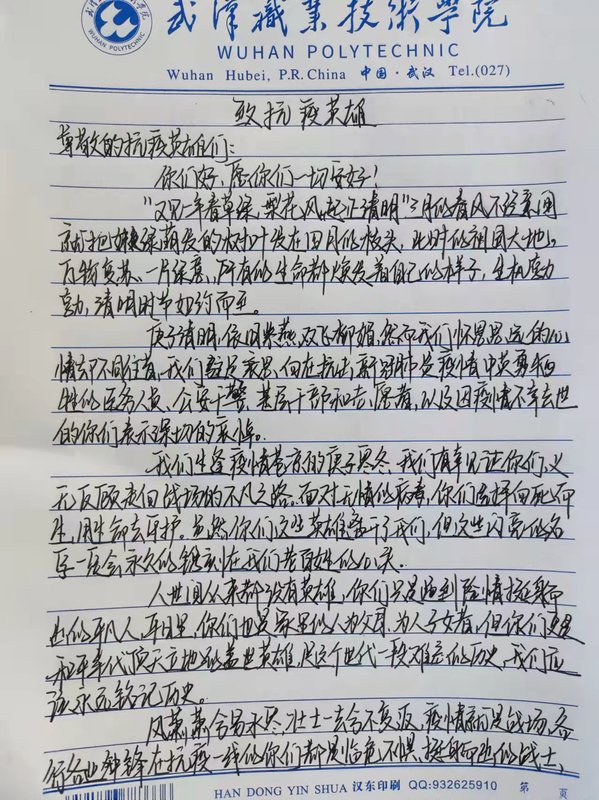 武汉職業技術學院
WUHAN POLYTECHNIC
Wuhan Hubei, P.R. China 中国·武汉 Tel.(027)
致抗疫英雄
尊敬的抗疫英雄们：
你们好，愿你们一切安好！
“又见一年春草绿，梨花风起正清明”三月的春风不经意间
就把嫩绿萌发的树叶发在四月的枝头，此时的祖国大地，
万物复苏、一片绿意，所有的生命都焕发着自己的样子，生机盎
盎动，清明时节如约而至。
庚子清明，依旧来燕双飞柳媚，然而我们怀思思远的心
情却不同往昔，我们致以哀思，向在抗击新冠肺炎疫情中英勇牺
牲的医务人员、公安干警、基层干部和志愿者，以及因疫情不幸去世
的你们表示深切的哀悼。
我们生逢疫情笼罩的庚子寒冬，我们有幸见证你们义
无反顾奔向战场的不凡之路。面对无情的病毒，你们选择向死而
生，用生命去守护。虽然你们这些英雄离开了我们，但这些闪亮的名
字一定会永久的镌刻在我们老百姓的心头。
人世间从来都没有英雄，你们只是遇到险情挺身而
出的平凡人，平日里，你们也是家里的人为父母，为人子女者，但你们更是
和平年代顶天立地的盖世英雄，是这个世代一段难忘的历史，我们应
该永远铭记历史。
风萧萧兮易水寒，壮士一去兮不复返，疫情就是战场，各
行各业冲锋在抗疫一线的你们都是临危不惧、挺身而出的战士，
HAN DONG YIN SHUA 汉东印刷 QQ:932625910 第 页